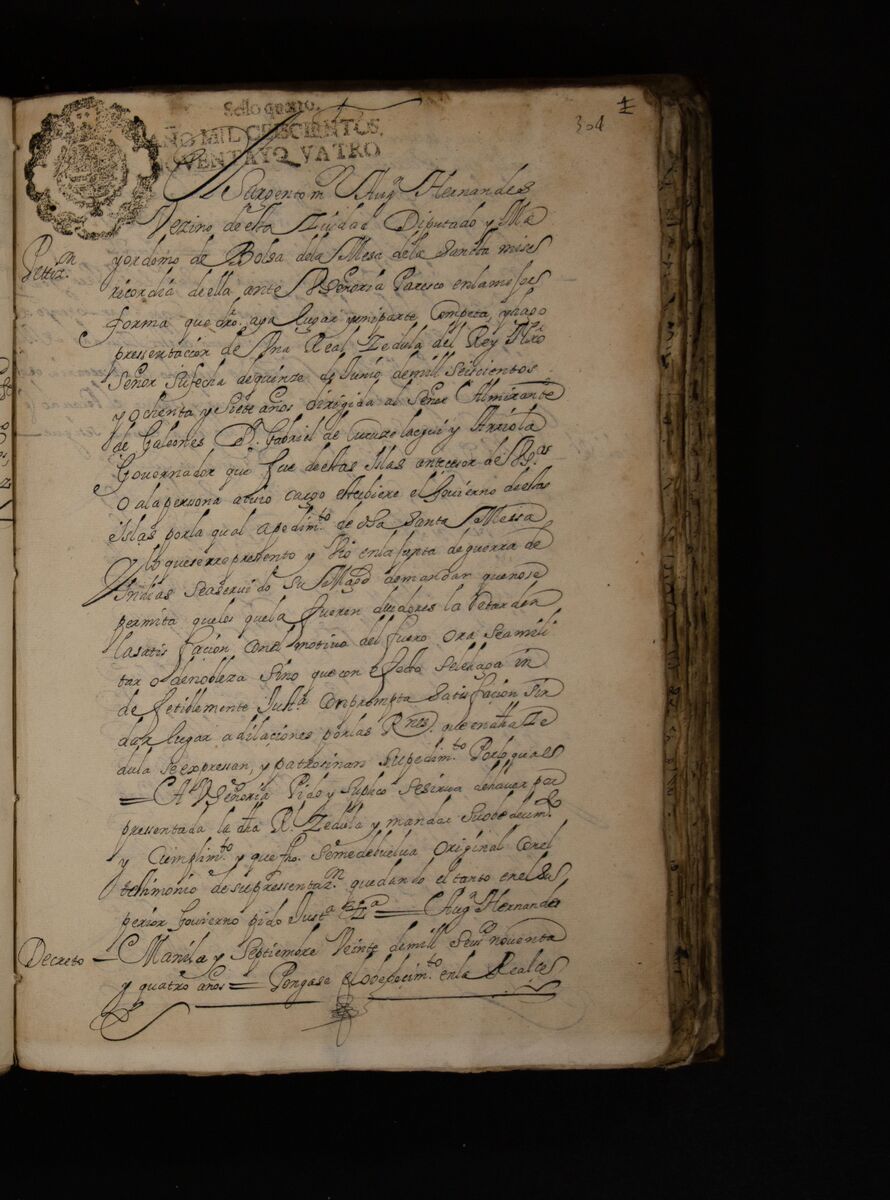 Sello quarto,
AÑO MIL SEISCIENTOS,
NOVENTA Y QVATRO
304
1
Sargento m.r Aug.n Hernandes
Vezino de esta Ziudad Diputado y Ma
Pettiz.n
yordomo de Bolsa dela Mesa dela Santta mises
ricordia de ella ante Vseñoria Paresco en la mejor
forma que dro. aya lugar y mi parte Competa, y hago
pressentacion de Vna Real Zedula del Rey Nro
Señor su fecha de quinze de Junio de mill Seiscientos
y ochenta y Siete años dirigida al Señor Almirante
de Galeones D. Gabriel de Curuzelaegui y Arriola
Governador que fue de estas Islas antecesor de
O ala persona a cuio cargo estubiere el Gouierno de elas
Islas por la qual a pedim.to de dha Santa Messa
que se rrepresento y Vio en la Junta de guerra de
Indias se a seruido su Magd de mandar que no se
permita que los que la fueren deudores la retarden
la satisfacion con el motivo del fuero Ora sea mili
tar o de nobleza sino que con efecto se le haga in
defectiblemente Just.a Con prompta Satisfacion sin
dar lugar a dilaciones por las que en dha Ze
dula se expressan, y patrocinan su pedim.to Por lo qual
= A Vseñoria Pido y suplico se sirua de hauer por
pressentada la dha R. Zedula y mandar su obedecim.to
y Cumplim.to y que fho. se me debuelua Original Con el
testimonio de su pressentaz.n quedando el tanto en el Su
perior Gouierno pido Just.a = Aug.n Hernandes
Decreto
Manila y Septiembre Veinte de mill Seis.s nouenta
y quatro años = Pongase el obedecim.to en la Real Ces